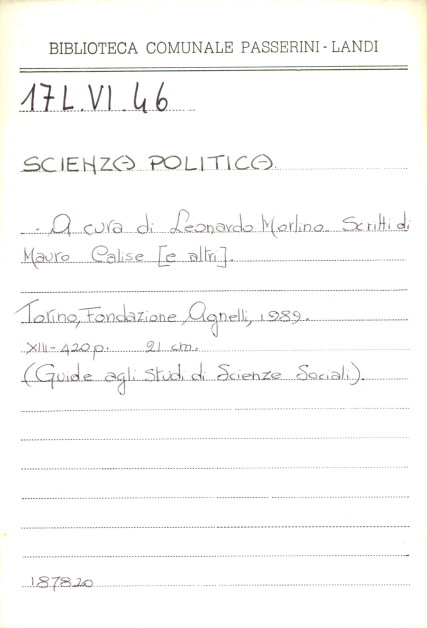 BIBLIOTECA COMUNALE PASSERINI - LANDI
17L.VI.46
SCIENZA POLITICA.
. A cura di Leonardo Morlino. Scritti di
Mauro Calise [e altri].
Torino, Fondazione Agnelli, 1989.
XIII-420 p. 21 cm.
(Guide agli studi di Scienze Sociali).
187820